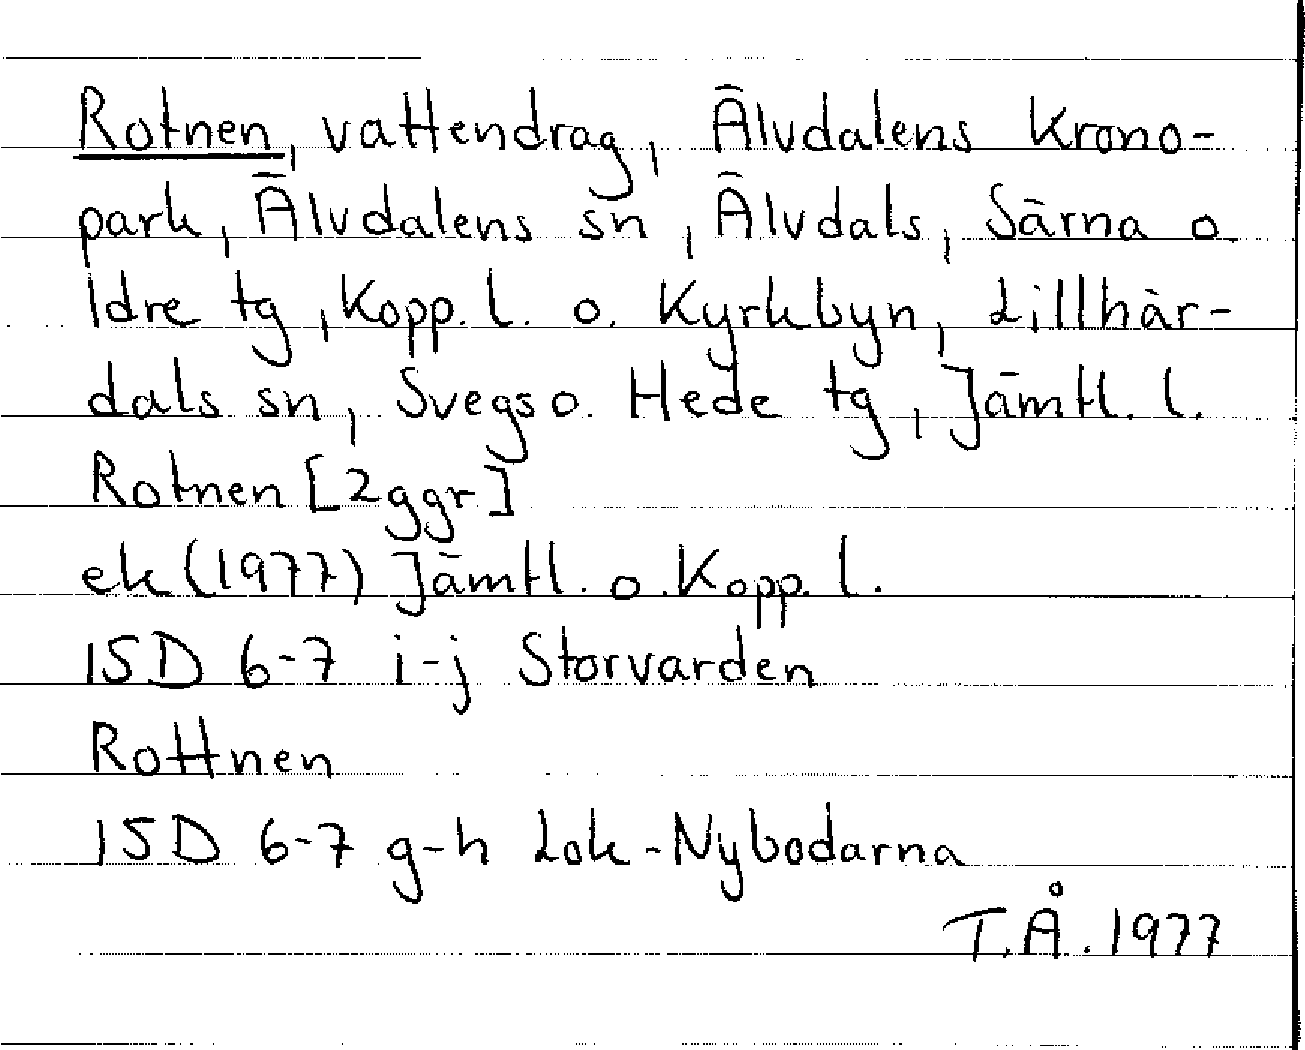 Rotnen, vattendrag, Älvdalens Krono-
park, Älvdalens sn, Älvdals, Särna o
Idre tg, Kopp. l. o. Kyrkbyn, Lillhär-
dals sn, Svegs o. Hede tg, Jämtl. l.
Rotnen [2ggr]
ek (1977) Jämtl. o. Kopp. l.
15D 6-7 i-j Storvarden
Rottnen
15D 6-7 g-h Lok-Nybodarna
T.Å. 1977